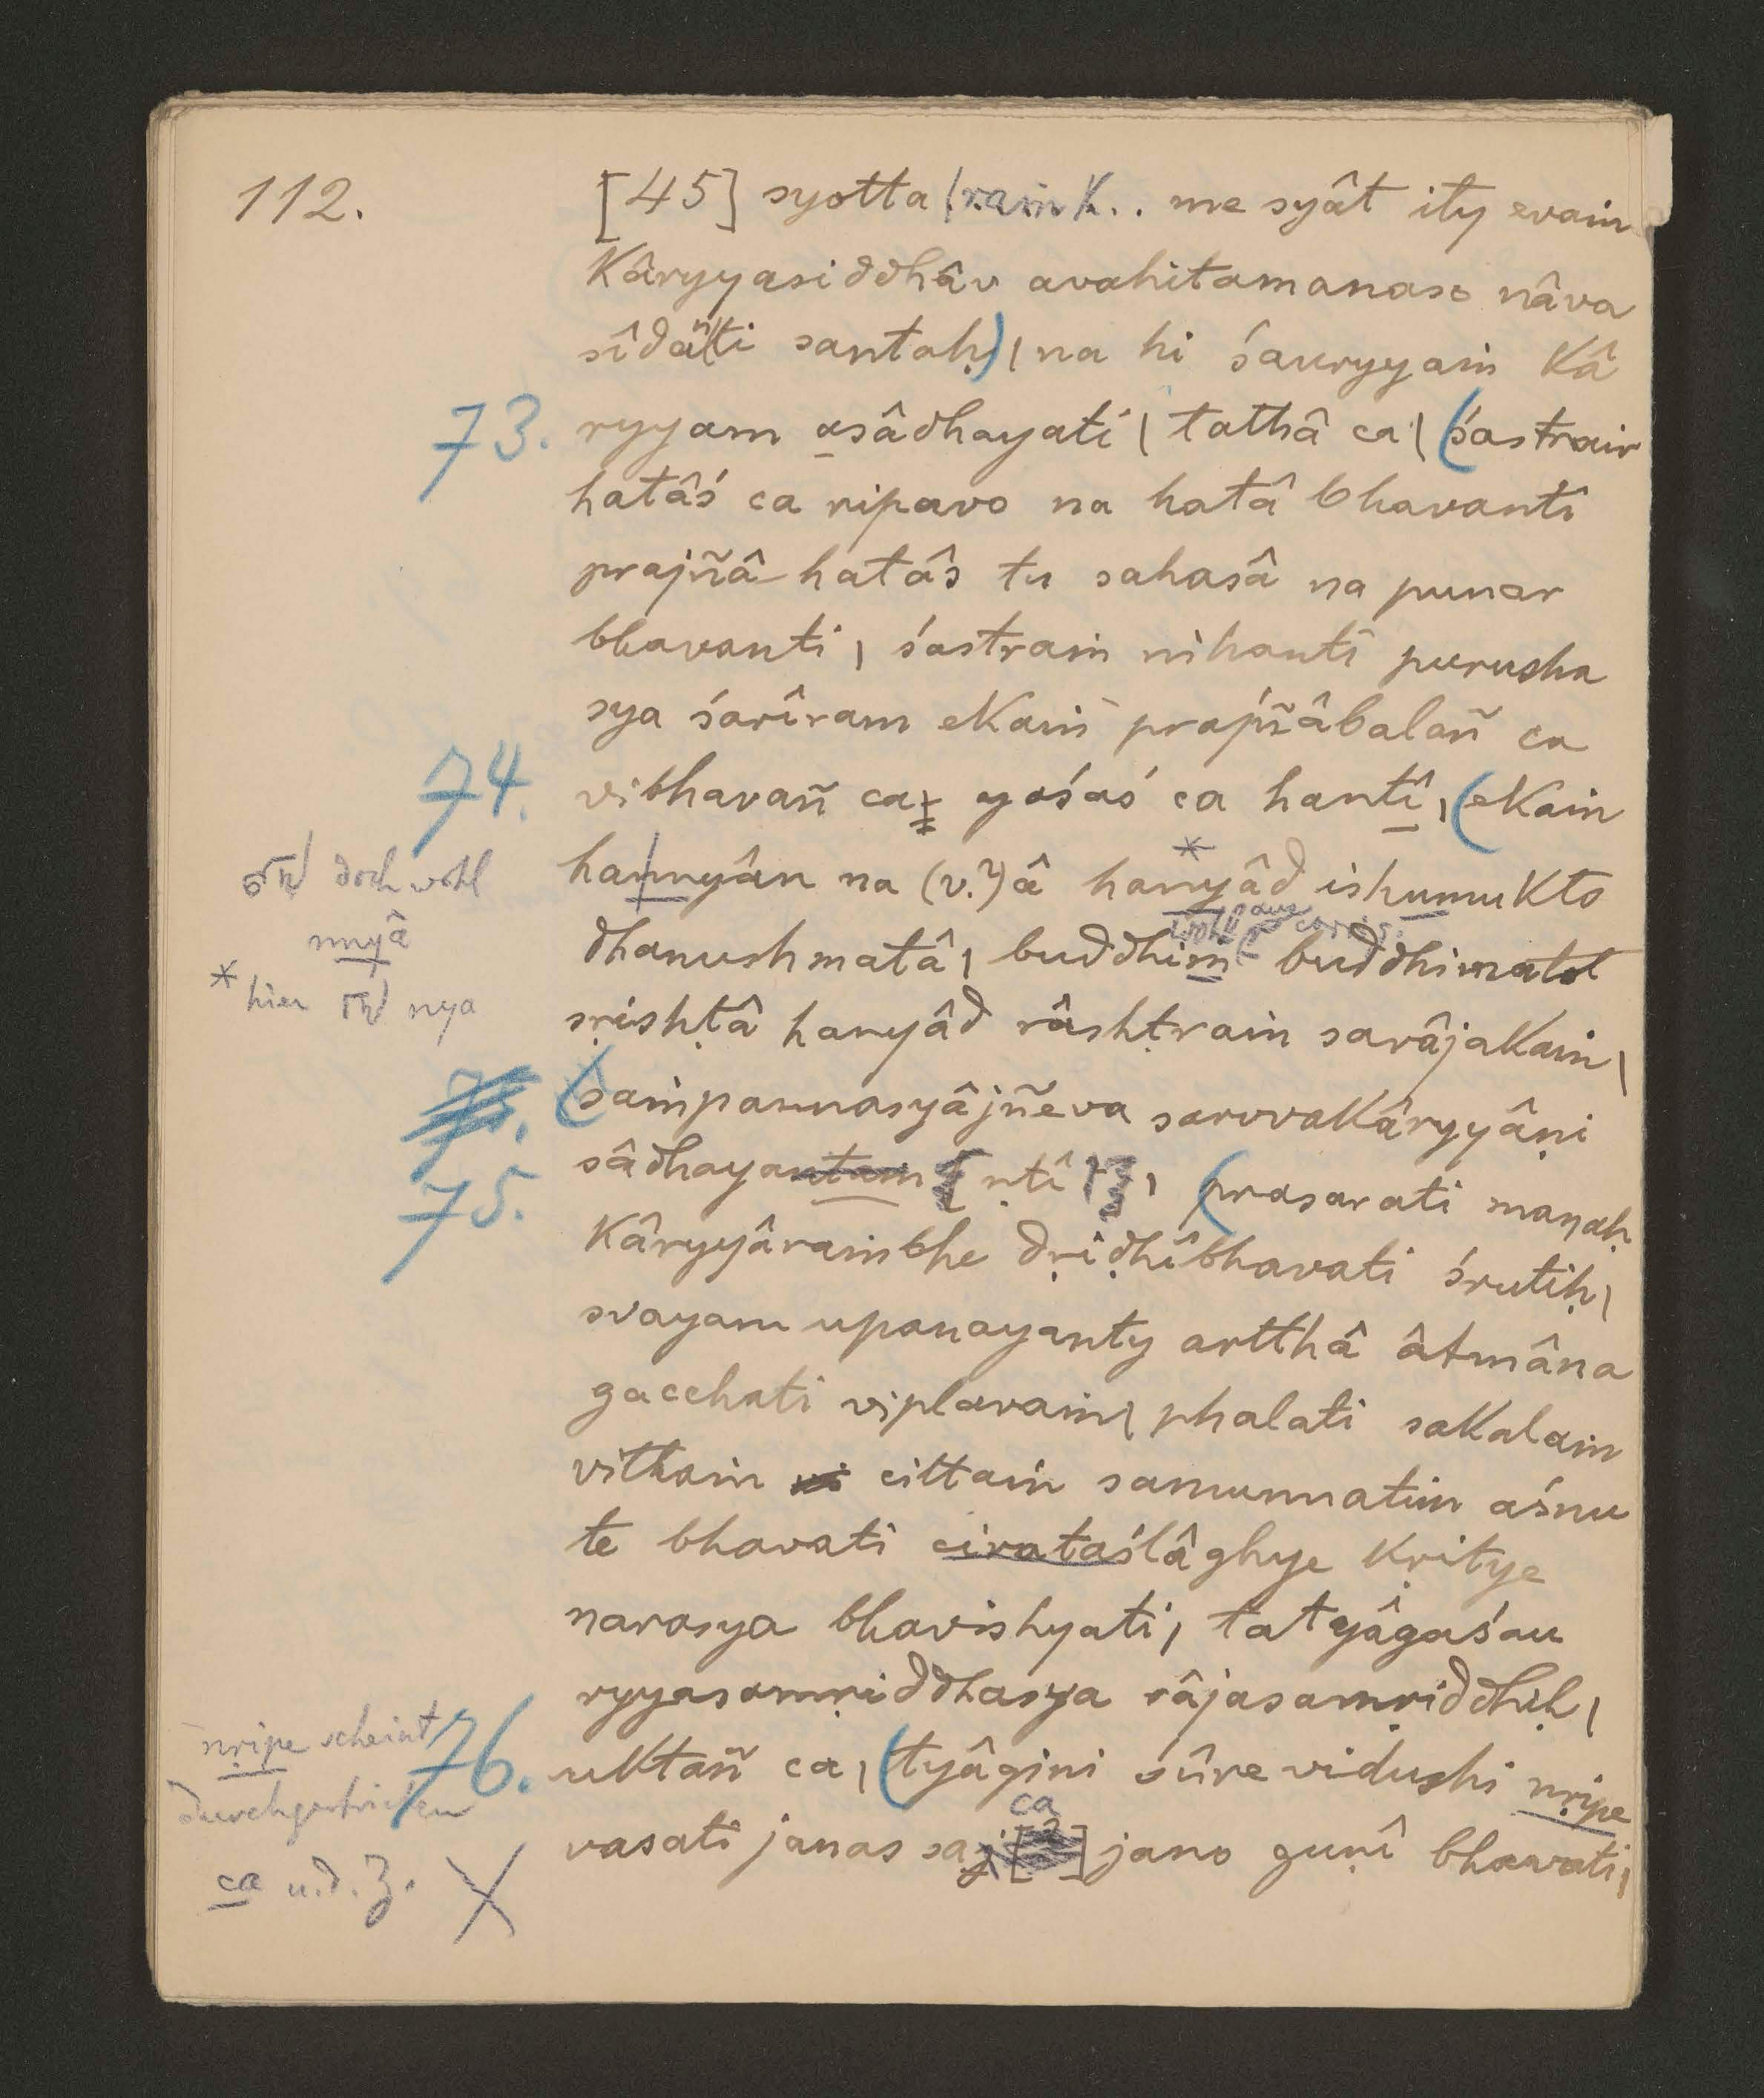 112.
[45] syotta (raṁ k.. me syât ity evaṁ
kâryyasiddhâv avahitamanaso nâva
sîdanti santaḥ) | na hi śauryyaṁ kâ
73. ryyam asâdhayati | tathâ ca | (śastrair
hatâś ca ripavo na hatâ bhavanti
prajñâ-hatâs tu sahasâ na punar
bhavanti | śastraṁ nihanti purusha
sya śarîram ekaṁ prajñâbalañ ca
74. vibhavañ ca yaśaś ca hantî | (ekaṁ
doch wohl
nnyâ
hannyân na (v.?) â hanyâd * ishumukto
dhanushmatâ | buddhim buddhimatot
wohl aus corrig.
* hier nya
sṛishṭâ hanyâd râshṭraṁ sarâjakaṁ |
75. (saṁpannasyâjñeva sarvvakâryyâṇi
sâdhayantam [ṇtî] | (prasarati maṇaḥ
75.
kâryyâraṁbhe dṛiḍhîbhavati śrutiḥ |
svayam upanayanty artthâ âtmâna
gacchati viplavaṁ | phalati sakalaṁ
vitthaṁ cittaṁ samunnatim aśnu
te bhavati cirataślâghye kṛitye
narasya bhavishyati | tatyâgaśau
ryyasamṛiddhasya râjasamṛiddhiḥ |
nṛipe scheint
durchgestrichen
76. uktañ ca | (tyâgini śûre vidushi nṛipe
vasati janas saj [?] jano guṇî bhavati |
ca
ca u. d. Z. X